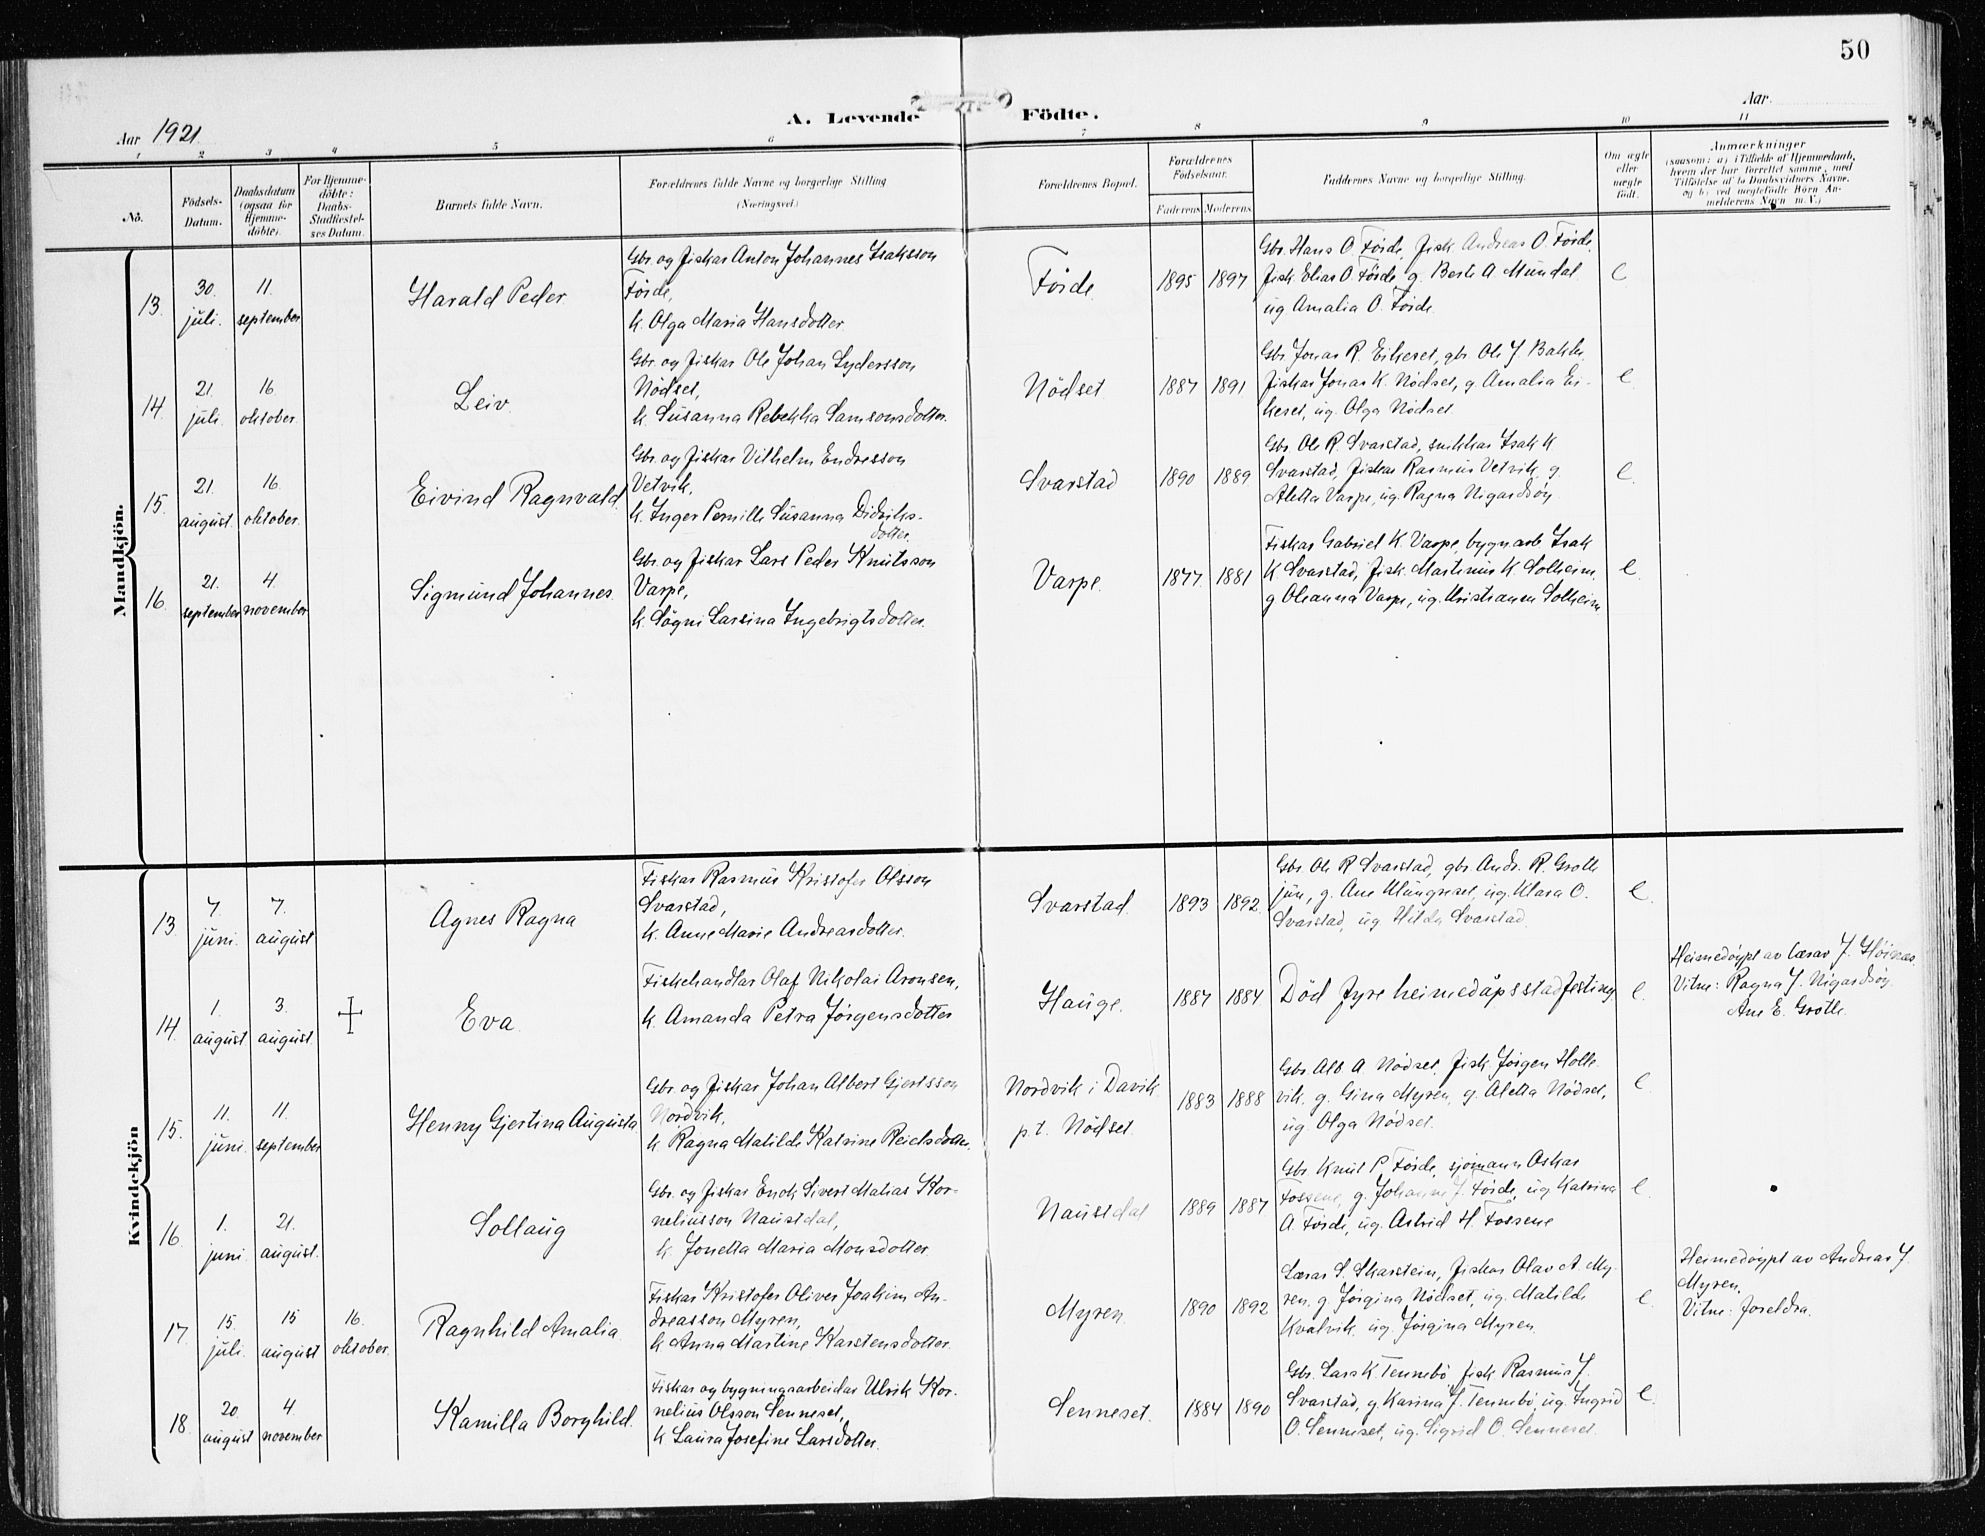 50
A. Levende Födte.
Aar 1921.
Aar
1 2 3 4 5 6 7 8 9 10 11
No.
Födsels-
Datum.
Daabsdatum
(ogsaa for
Hjemme-
döbte).
For Hjemme-
döbte:
Daabs-
Stadfæstel-
ses Datum.
Barnets fulde Navn.
Forældrenes fulde Navne og borgerlige Stilling
(Næringsvei.)
Forældrenes Bopæl.
Forældrenes
Födselsaar.
Faderens Moderens
Faddernes Navne og borgerlige Stilling.
Om ægte
eller
uægte
födt.
Anmærkninger
(saasom: a) i Tilfælde af Hjemmedaab,
hvem der har forrettet samme, med
Tilföielse af to Daabsvidners Navne,
og b) ved uægtefödte Börn An-
melderens Navn m. V.)
Mandkjön.
13. 30. juli. 11. september Harald Peder
Gbr. og fiskar Anton Johannes Isaksson
Førde,
k. Olga Maria Hansdotter.
Førde. 1895 1897
Gbr. Hans O. Førde, fisk. Andreas O. Førde,
fisk. Elias O. Førde, g. Berte A. Mundal
ug Amalia O. Førde.
e
14. 21. juli. 16. oktober. Leiv.
Gbr. og fiskar Ole Johan Lydersson
Nödset,
k. Susanna Rebekka Samsonsdotter.
Nödset 1887 1891
Gbr. Jonas R. Eikeset, gbr. Ole J. Bakke,
fiskar Jonas K. Nödset, g. Amalia Ei-
keset, ug. Olga Nödset.
e.
15. 21. august. 16. oktober. Eivind Ragnvald.
Gbr. og fiskar Vilhelm Endresson
Vetvik,
k. Inger Pernille Susanna Didriks-
dotter.
Svarstad 1890 1889.
Gbr. Ole R. Svarstad, snikkar Isak K.
Svarstad, fiskar Rasmus Vetvik, g.
Aletta Varpe, ug. Ragna Nigardsøy.
e.
16. 21. september 4. november Sigmund Johannes.
Gbr. og fiskar Lars Peder Knutsson
Varpe,
k. Søgni Larsina Ingebrigtsdotter.
Varpe. 1877 1881
Fiskar Gabriel K. Varpe, bygn.arb. Isak
K. Svarstad, fisk. Martinus K. Solheim,
g. Oleanna Varpe, ug. Kristianna Solheim
e.
Kvindekjön
13. 7. juni. 7. august Agnes Ragna
Fiskar Rasmus Kristofer Olsson
Svarstad,
k. Anne Marie Andreasdotter.
Svarstad. 1893 1892
Gbr. Ole R. Svarstad, gbr. Andr. R. Grotle
jun, g. Ane Klungreset, ug. Klara O.
Svarstad, ug Hilda Svarstad.
e.
14. 1. august 3. august. Eva.
Fiskehandlar Olaf Nikolai Aronsen,
k. Amanda Petra Jørgensdotter
Hauge. 1887 1884
Död fyre heimedåpsstadfesting.
e.
Heimedøypt av lærar J. Høinæs.
Vitne: Ragna J. Nigardsøy.
Ane E. Grotle.
15. 11. juni. 11. september Henny Gjertina Augusta
Gbr. og fiskar Johan Albert Gjertsson
Nordvik,
k. Ragna Matilde Katrine Reidsdotter.
Nordvik i Davik
p.t. Nödset. 1883 1888
Gbr. Alb. A. Nödset, fisk. Jørgen Holle-
vik, g. Gina Myren, g. Aletta Nödset,
ug. Olga Nödset.
e
16. 1. juni. 21. august. Sollaug
Gbr. og fiskar Enok Sivert Matias Kor-
neliusson Naustdal,
k. Jonetta Maria Monsdotter.
Naustdal 1889 1887
Gbr. Knut P. Førde, sjømann Oskar
Fossene, g. Johanne J. Førde, ug Katrina
A. Førde, ug. Astrid H. Fossene
e.
17. 15. juli. 15 august 16. oktober. Ragnhild Amalia.
Fiskar Kristofer Oliver Joakim An-
dreasson Myren,
k. Anna Martine Karstensdotter.
Myren. 1890 1892
Lærar S. Skarstein, fiskar Olav A. My-
ren, g. Jørgina Nödset, ug. Matilde
Kvalvik. ug. Jørgina Myren.
e.
Heimedøypt av Andreas J.
Myren.
Vitne: foreldra.
18. 20. august 4. november Kamilla Borghild.
Fiskar og bygningsarbeidar Ulrik Kor-
nelius Olsson Senneset,
k. Laura Josefine Larsdotter.
Senneset. 1884 1890
Gbr. Lars K Tennebø, fisk. Rasmus J.
Svarstad, g. Karina J. Tennebø, ug. Ingrid
O. Senneset, ug. Sigrid O. Senneset.
e.